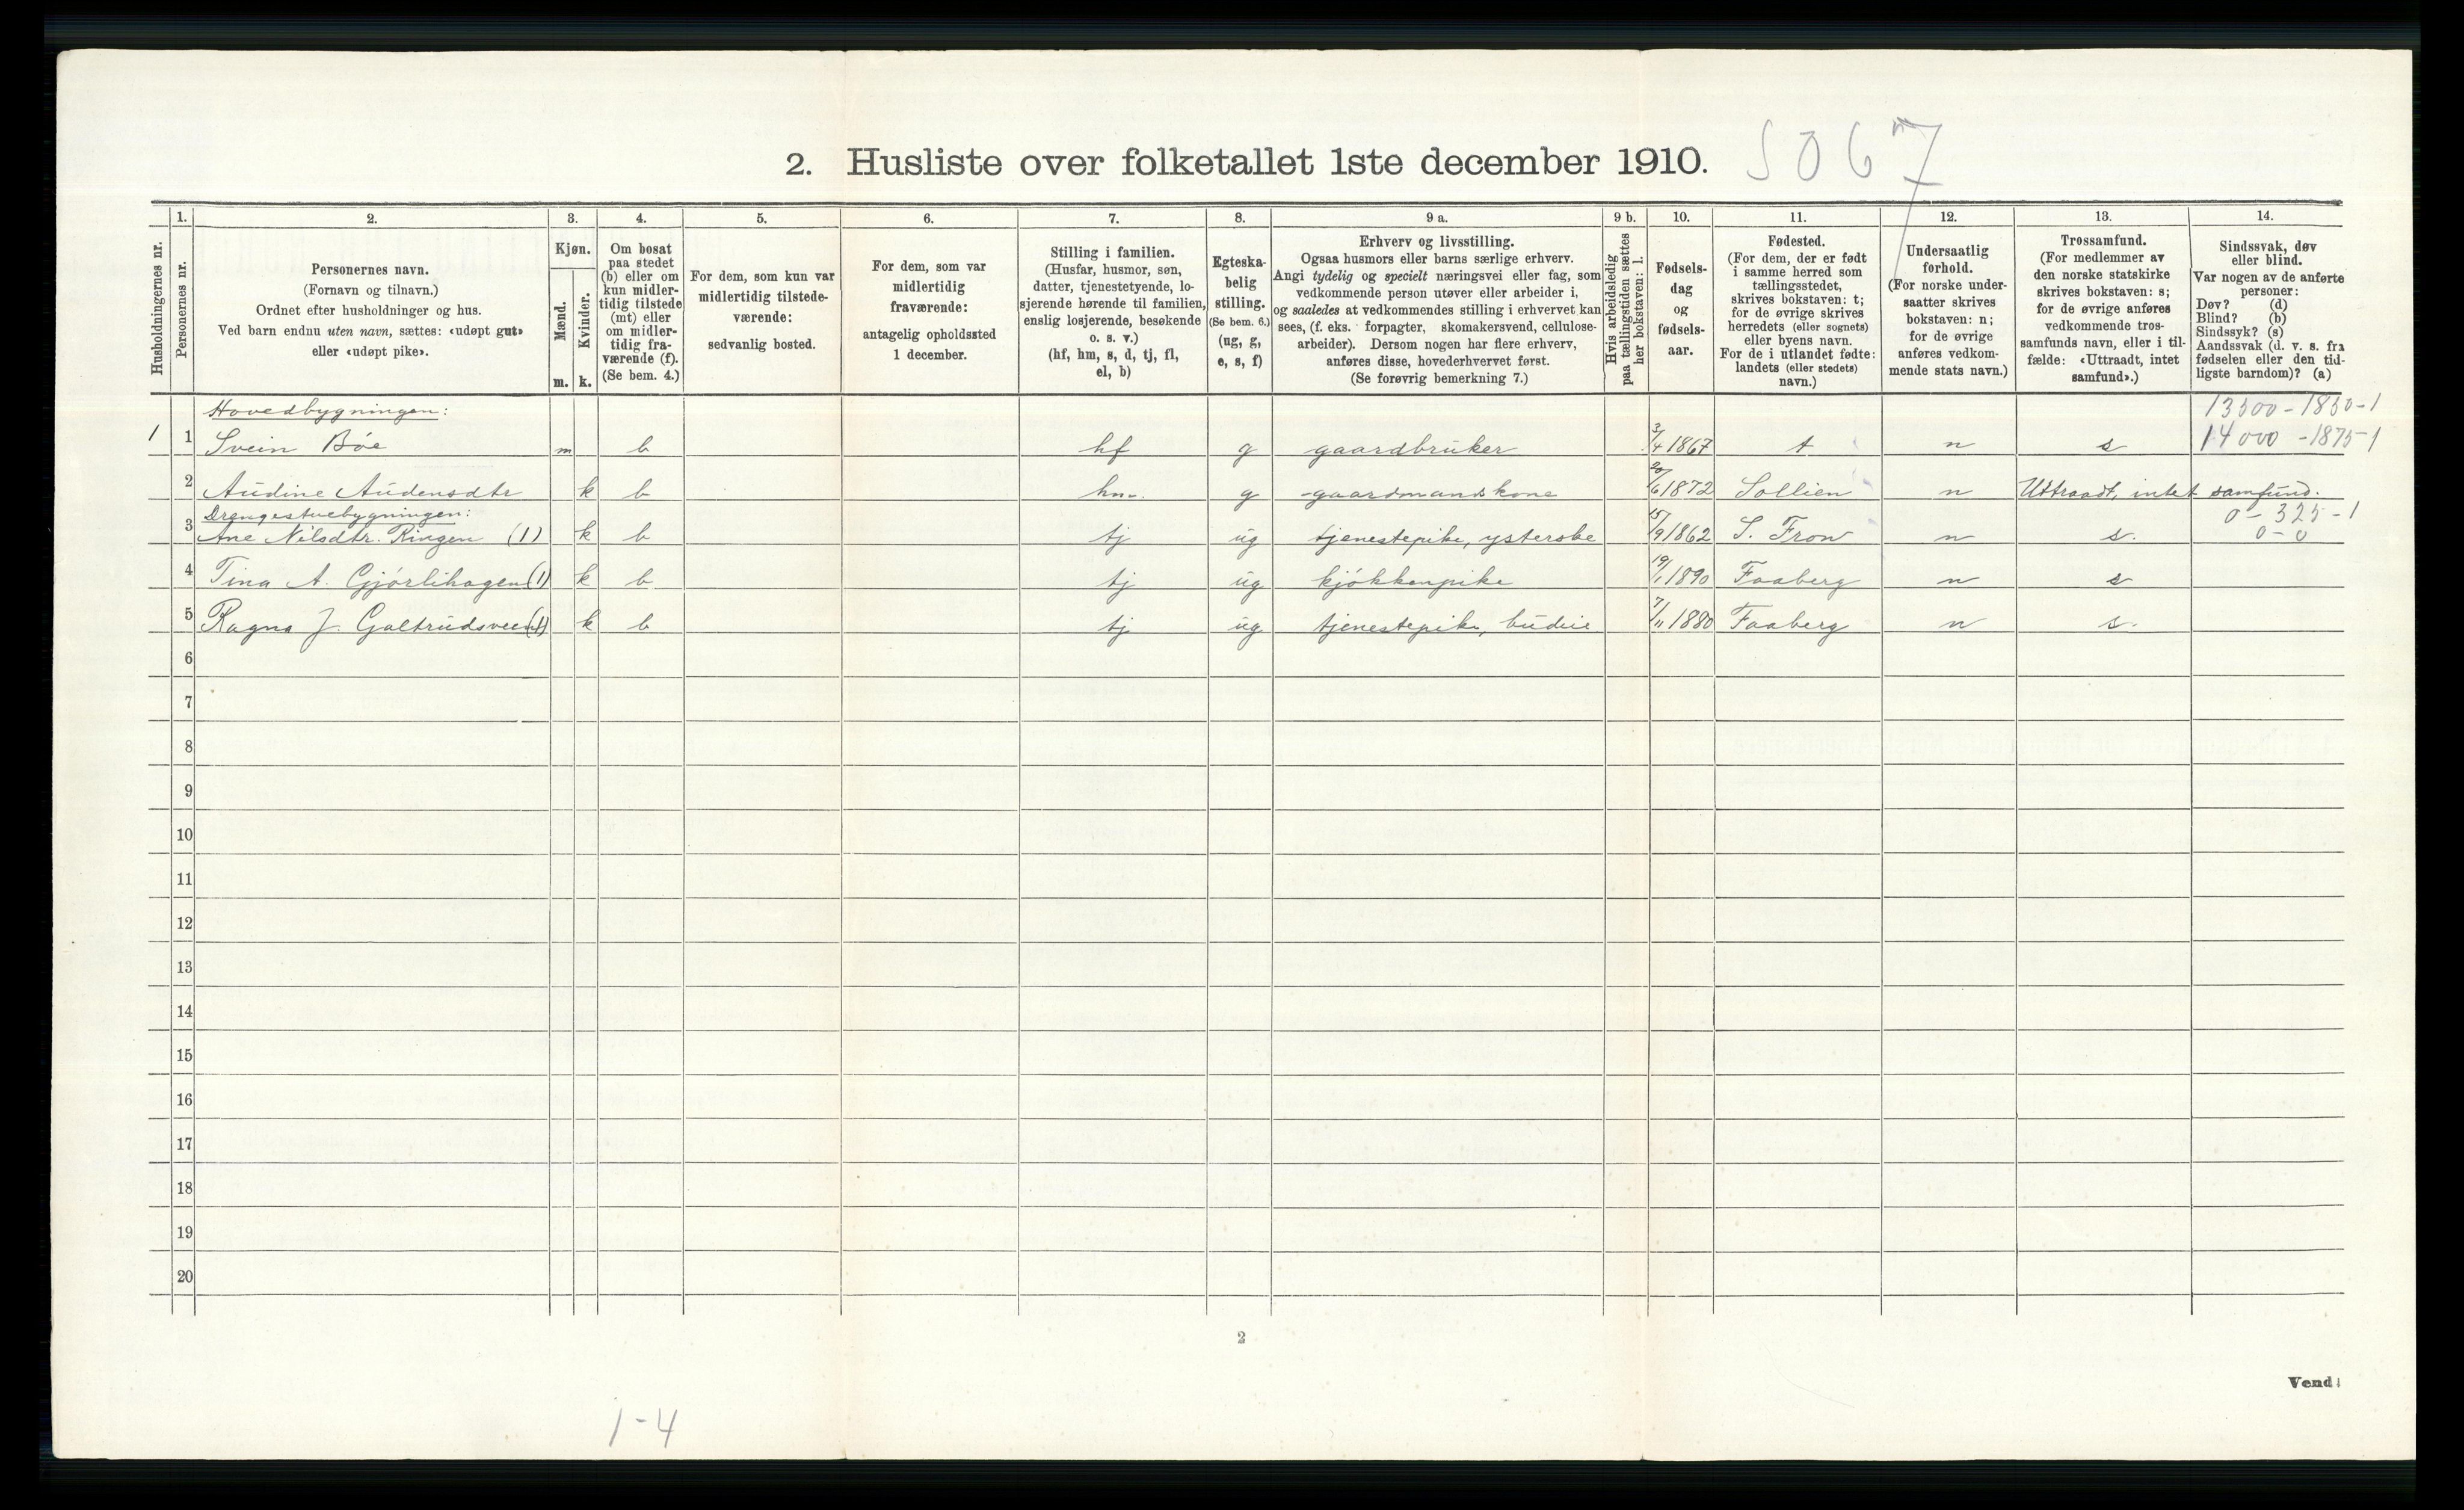 2. Husliste over folketallet 1ste december 1910. 5067
Husholdningernes nr.
1.
Personernes nr.
2.
Personernes navn.
(Fornavn og tilnavn.)
Ordnet efter husholdninger og hus.
Ved barn endnu uten navn, sættes: «udøpt gut»
eller «udøpt pike».
3.
Kjøn.
Mænd.
Kvinder.
m. k.
4.
Om bosat
paa stedet
(b) eller om
kun midler-
tidig tilstede
(mt) eller
om midler-
tidig fra-
værende (f).
(Se bem. 4.)
5.
For dem, som kun var
midlertidig tilstede-
værende:
sedvanlig bosted.
6.
For dem, som var
midlertidig
fraværende:
antagelig opholdssted
1 december.
7.
Stilling i familien.
(Husfar, husmor, søn,
datter, tjenestetyende, lo-
sjerende hørende til familien,
enslig losjerende, besøkende
o. s. v.)
(hf, hm, s, d, tj, fl,
el, b)
8.
Egteska-
belig
stilling.
(Se bem. 6.)
(ug, g,
e, s, f)
9 a.
Erhverv og livsstilling.
Ogsaa husmors eller barns særlige erhverv.
Angi tydelig og specielt næringsvei eller fag, som
vedkommende person utøver eller arbeider i,
og saaledes at vedkommendes stilling i erhvervet kan
sees, (f. eks. forpagter, skomakersvend, cellulose-
arbeider). Dersom nogen har flere erhverv,
anføres disse, hovederhvervet først.
(Se forøvrig bemerkning 7.)
9 b.
Hvis arbeidsledig
paa tællingstiden sættes
her bokstaven: l.
10.
Fødsels-
dag
og
fødsels-
aar.
11.
Fødested.
(For dem, der er født
i samme herred som
tællingsstedet,
skrives bokstaven: t;
for de øvrige skrives
herredets (eller sognets)
eller byens navn.
For de i utlandet fødte:
landets (eller stedets)
navn.)
12.
Undersaatlig
forhold.
(For norske under-
saatter skrives
bokstaven: n;
for de øvrige
anføres vedkom-
mende stats navn.)
13.
Trossamfund.
(For medlemmer av
den norske statskirke
skrives bokstaven: s;
for de øvrige anføres
vedkommende tros-
samfunds navn, eller i til-
fælde: «Uttraadt, intet
samfund».)
14.
Sindssvak, døv
eller blind.
Var nogen av de anførte
personer:
Døv? (d)
Blind? (b)
Sindssyk? (s)
Aandssvak (d. v. s. fra
fødselen eller den tid-
ligste barndom)? (a)
Hovedbygningen: 13500-1850-1
1 1 Svein Bøe m b hf g gaardbruker 3/4 1867 t n s 14000-1875-1
2 Audine Audensdtr k b hm. g gaardmandskone 20/6 1872 Sollien n Uttraadt, intet samfund.
Drengestuebygningen: 0-325-1
3 Ane Nilsdtr. Ringen (1) k b tj ug tjenestepike, ysterske 15/9 1862 S. Fron n s. 0-0
4 Tina A. Gjørlihagen (1) k b tj ug kjøkkenpike 19/1 1890 Faaberg n s
5 Ragna J. Galtrudsveen (1) k b tj ug tjenestepike, budeie 7/11 1880 Faaberg n s.
6
7
8
9
10
11
12
13
14
15
16
17
18
19
20
2
Vend!
1-4